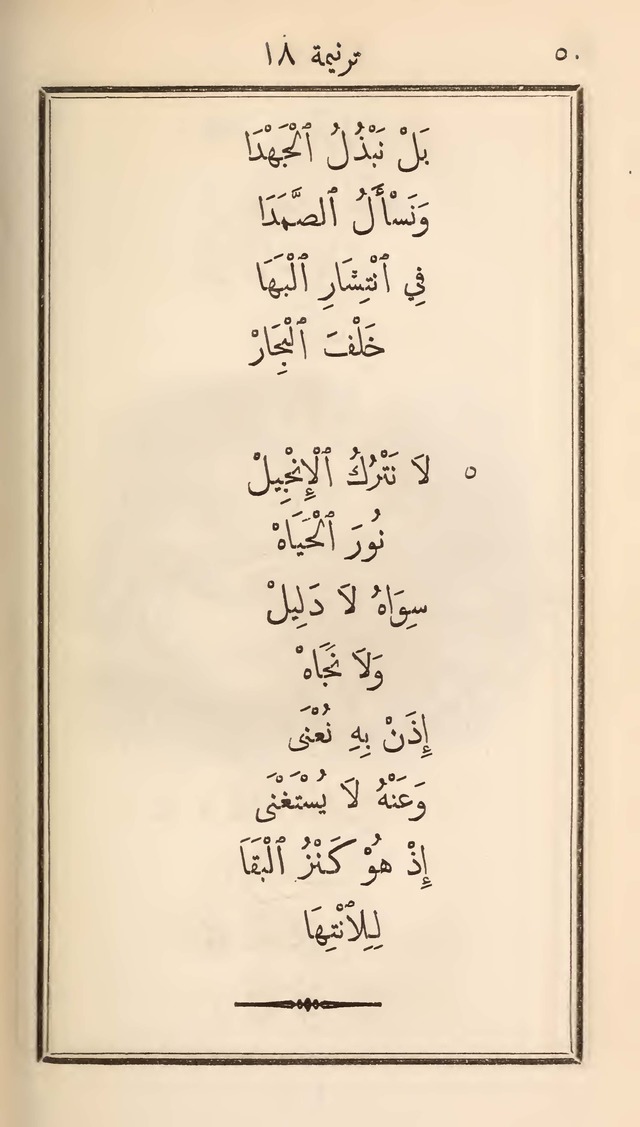 ٥٠ ترنيمة ١٨
بَلْ نَبْذُلُ ٱلْجَهْدَا
وَنَسْأَلُ ٱلصَّمَدَا
فِي ٱنْتِشَارِ ٱلْبَهَا
خَلْفَ ٱلْبِحَارْ
٥ لاَ نَتْرُكُ ٱلْإِنْجِيلْ
نُورَ ٱلْحَيَاهْ
سِوَاهُ لاَ دَلِيلْ
وَلاَ نَجَاهْ
إِذَنْ بِهِ نُعْنَى
وَعَنْهُ لاَ يُسْتَغْنَى
إِذْ هُوْ كَنْزُ ٱلْبَقَا
لِلِٱنْتِهَا